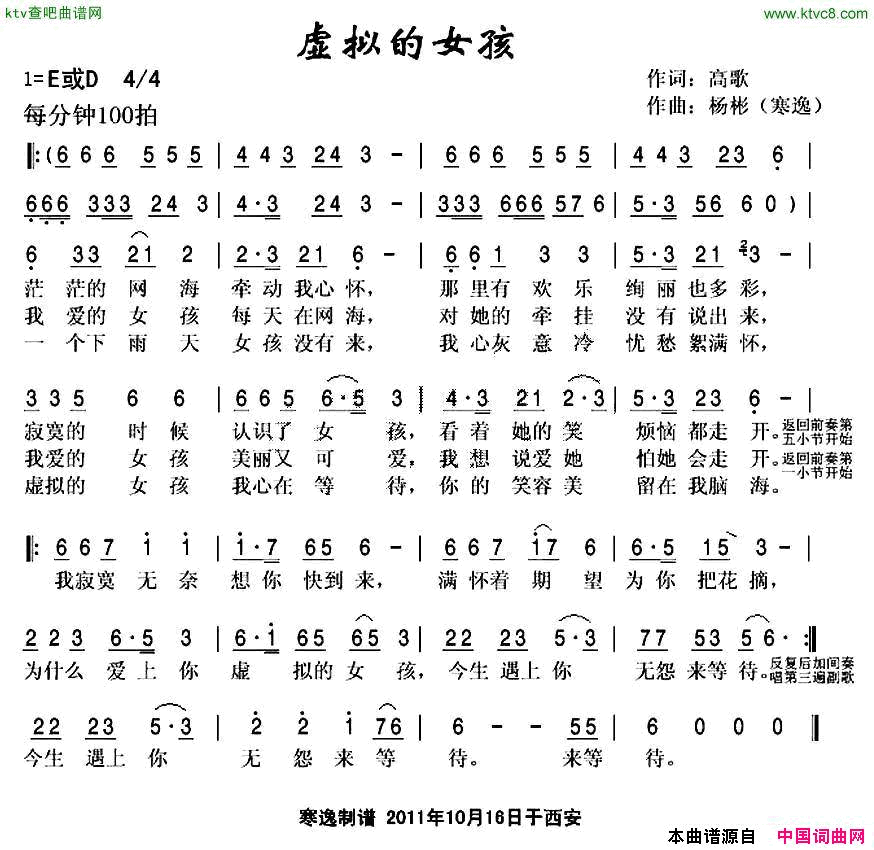 ktv查吧曲谱网
www.ktvc8.com
虚拟的女孩
1=E或D 4/4
作词：高歌
每分钟100拍
作曲：杨彬（寒逸）
‖:(6 6 6 5 5 5 | 4 4 3 24 3 - | 6 6 6 5 5 5 | 4 4 3 23 6
666 333 24 3 | 4·3 24 3 - | 333 666 57 6 | 5·3 56 6 0 )|
6 33 21 2 | 2·3 21 6 - | 6 6 1 3 3 | 5·3 21 3 - |
茫 茫的 网 海 牵动我心怀， 那里有 欢 乐 绚丽也多彩，
我 爱的 女 孩 每天在网海， 对她的 牵 挂 没有说出来，
一 个下 雨 天 女孩没有来， 我心灰 意 冷 忧愁絮满怀，
3 3 5 6 6 | 6 6 5 6·5 3 | 4·3 21 2·3 | 5·3 23 6 - |
寂寞的 时 候 认识了 女 孩，看着她的笑 烦恼都走开。返回前奏第五小节开始
我爱的 女 孩 美丽又可 爱，我想说爱她 怕她会走开。返回前奏第一小节开始
虚拟的 女 孩 我心在等 待，你的笑容美 留在我脑海。
‖: 6 6 7 1 1 | 1·7 65 6 - | 6 6 7 17 6 | 6·5 15 3 - |
我寂寞 无 奈 想你快到来， 满怀着 期 望 为你把花摘，
2 2 3 6·5 3 | 6·1 65 65 3 | 22 23 5·3 | 77 53 5 6· :‖
为什么 爱上你 虚 拟的女 孩，今生遇上你 无怨来等待。反复后加间奏唱第三遍副歌
22 23 5·3 | 2 2 1 76 | 6 - - 55 | 6 0 0 0 ‖
今生 遇上 你 无 怨 来 等 待。 来等 待。
寒逸制谱 2011年10月16日于西安
本曲谱源自 中国词曲网